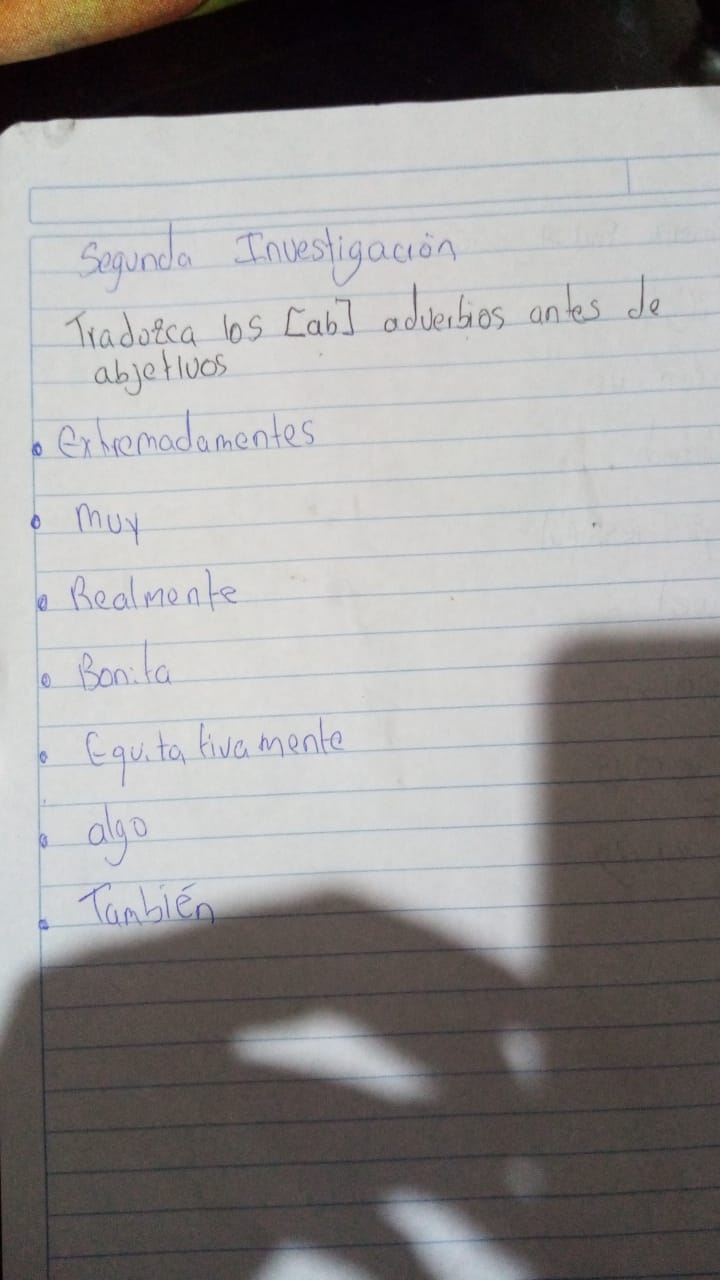 Segunda Investigación
Tradozca los [ab] adverbios antes de
abjetivos
Extremadamentes
muy
Realmente
Bonita
Equitativamente
algo
También